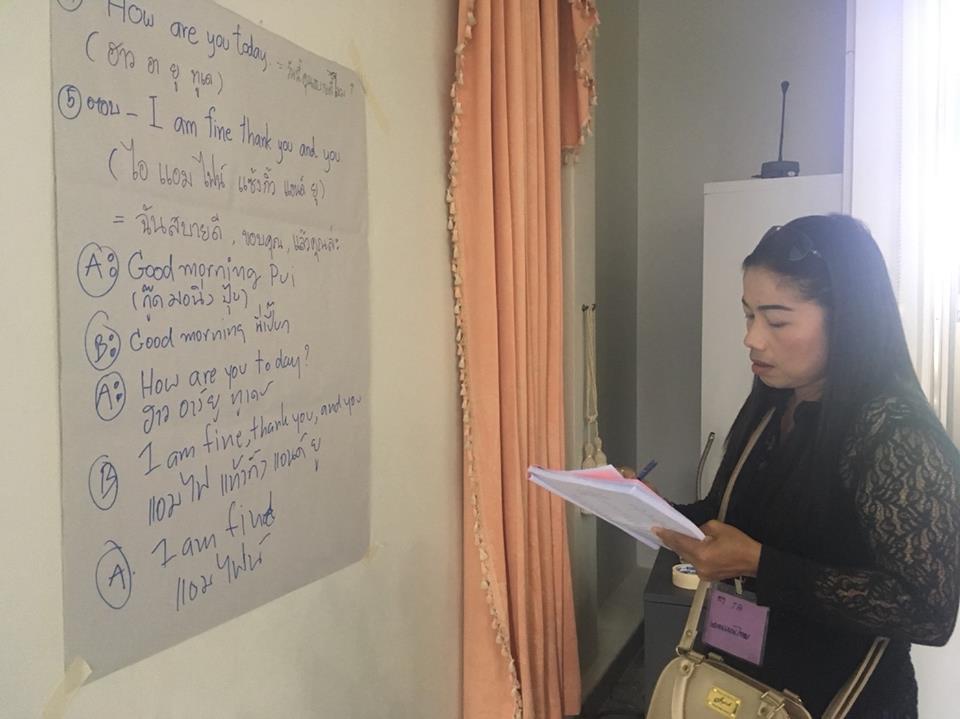 How are you today. = วันนี้คุณสบายดีไหม ?
(ฮาว อา ยู ทูเด)
⑤ ตอบ - I am fine thank you and you
(ไอ แอม ไฟน์ แซ้งกิ้ว แอนด์ ยู)
= ฉันสบายดี , ขอบคุณ , แล้วคุณล่ะ
A: Good morning Pui
(กู๊ดมอนิ่ง ปุ้ย)
B: Good morning
A: How are you to day?
ฮาว อาร์ยู ทูเดย์
B I am fine, thank you, and you
แอมไฟ แท้งกิ้ว แอนด์ ยู
A. I am fine
แอมไฟน์